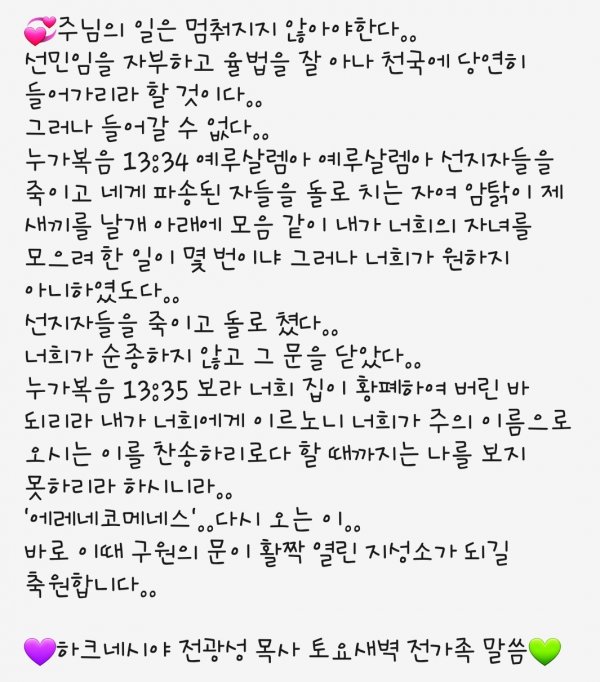 💞주님의 일은 멈춰지지 않아야한다。。
선민임을 자부하고 율법을 잘 아나 천국에 당연히
들어가리라 할 것이다。。
그러나 들어갈 수 없다。。
누가복음 13:34 예루살렘아 예루살렘아 선지자들을
죽이고 네게 파송된 자들을 돌로 치는 자여 암탉이 제
새끼를 날개 아래에 모음 같이 내가 너희의 자녀를
모으려 한 일이 몇 번이냐 그러나 너희가 원하지
아니하였도다。。
선지자들을 죽이고 돌로 쳤다。。
너희가 순종하지 않고 그 문을 닫았다。。
누가복음 13:35 보라 너희 집이 황폐하여 버린 바
되리라 내가 너희에게 이르노니 너희가 주의 이름으로
오시는 이를 찬송하리로다 할 때까지는 나를 보지
못하리라 하시니라。。
'에레네코메네스'。。다시 오는 이。。
바로 이때 구원의 문이 활짝 열린 지성소가 되길
축원합니다。。
💜하크네시야 전광성 목사 토요새벽 전가족 말씀💚